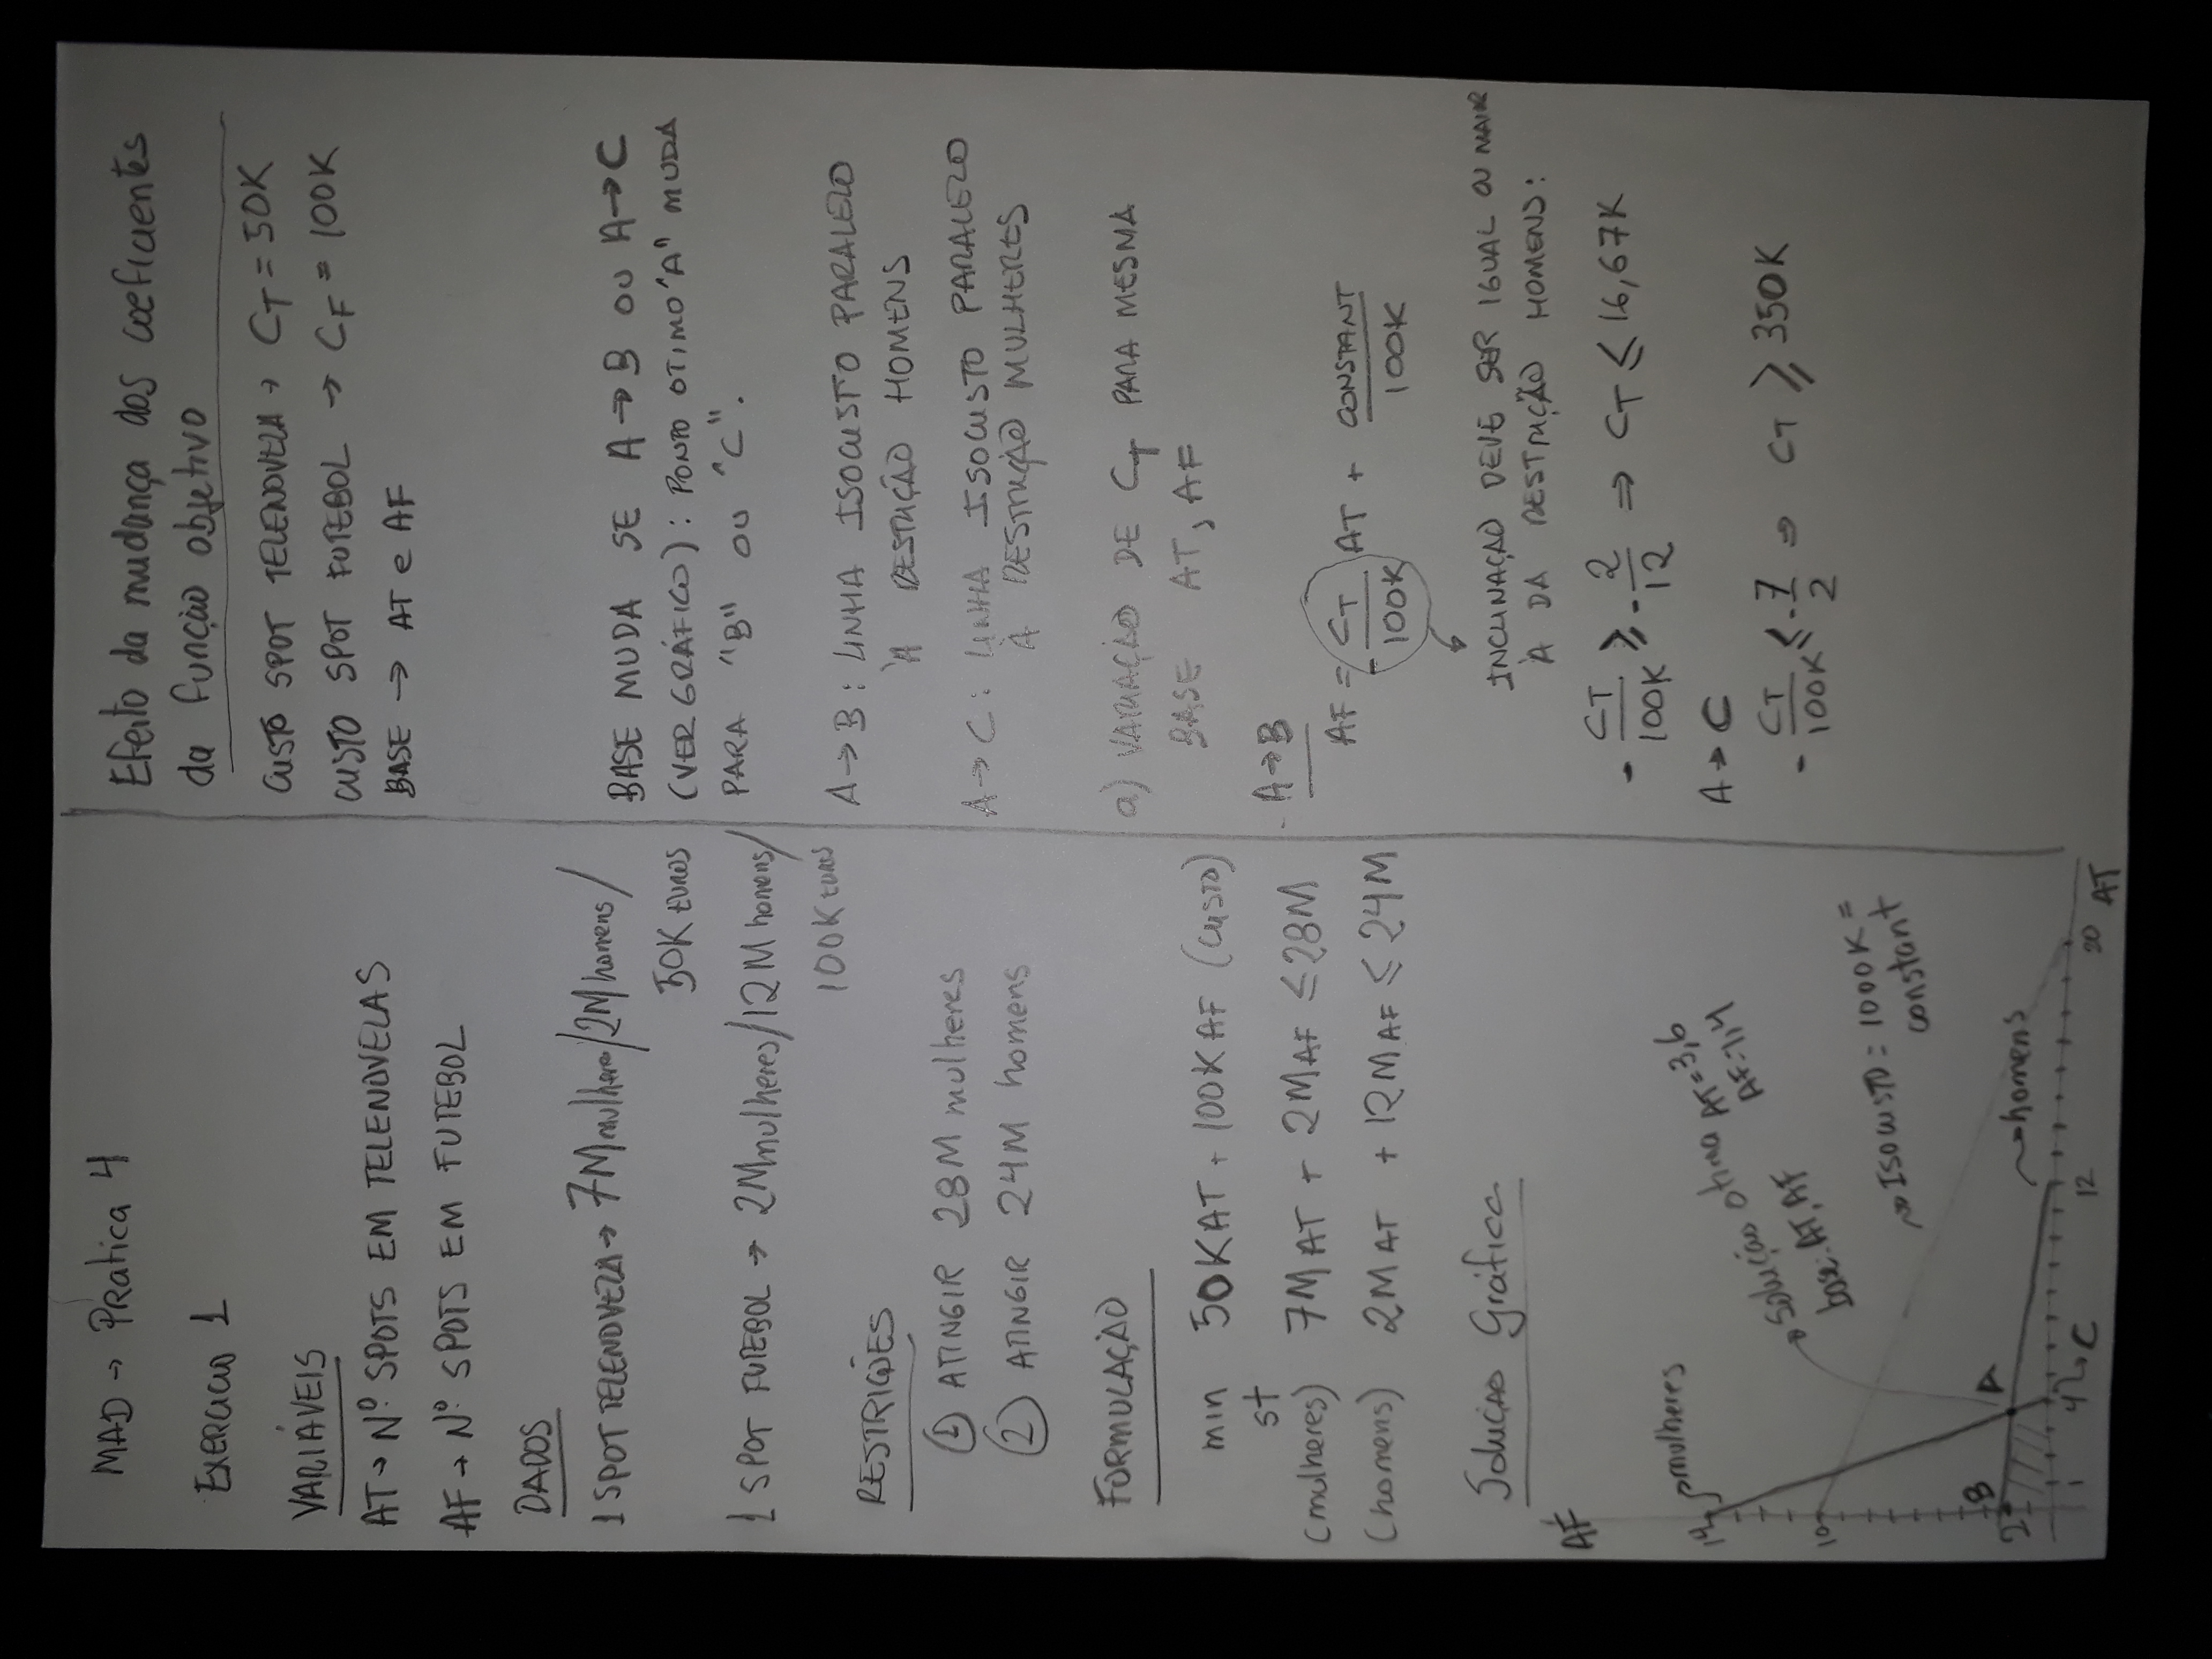 MAD → Pratica 4
EXERCICIO 1
VARIÁVEIS
AT → Nº SPOTS EM TELENOVELAS
AF → Nº SPOTS EM FUTEBOL
DADOS
1 SPOT TELENOVELA → 7M mulheres/2M homens/
50K EUROS
1 SPOT FUTEBOL → 2M mulheres/12M homens/
100K EUROS
RESTRIÇÕES
① ATINGIR 28M mulheres
② ATINGIR 24M homens
FORMULAÇÃO
min 50K AT + 100K AF (CUSTO)
st
(mulheres) 7M AT + 2M AF ≤ 28M
(homens) 2M AT + 12M AF ≤ 24M
Solução Gráfica
AF
14
mulheres
Solução otima AT = 3,6
AF = 1,4
base: AT, AF
10
ISOCUSTO = 1000K =
constant
B
A
2
homens
1
4
C
12
20
AT
Efeito da mudança dos coeficientes
da função objetivo
CUSTO SPOT TELENOVELA → CT = 50K
CUSTO SPOT FUTEBOL → CF = 100K
BASE → AT e AF
BASE MUDA SE A → B OU A → C
(VER GRÁFICO): PONTO OTIMO "A" MUDA
PARA "B" OU "C".
A → B: LINHA ISOCUSTO PARALELO
À RESTRIÇÃO HOMENS
A → C: LINHA ISOCUSTO PARALELO
À RESTRIÇÃO MULHERES
a) VARIAÇÃO DE CT PARA MESMA
BASE AT, AF
A → B
AF = - CT/100K AT + CONSTANT/100K
INCLINAÇÃO DEVE SER IGUAL OU MAIOR
À DA RESTRIÇÃO HOMENS:
- CT/100K ≥ - 2/12 ⇒ CT ≤ 16,67K
A → C
- CT/100K ≤ - 7/2 ⇒ CT ≥ 350K